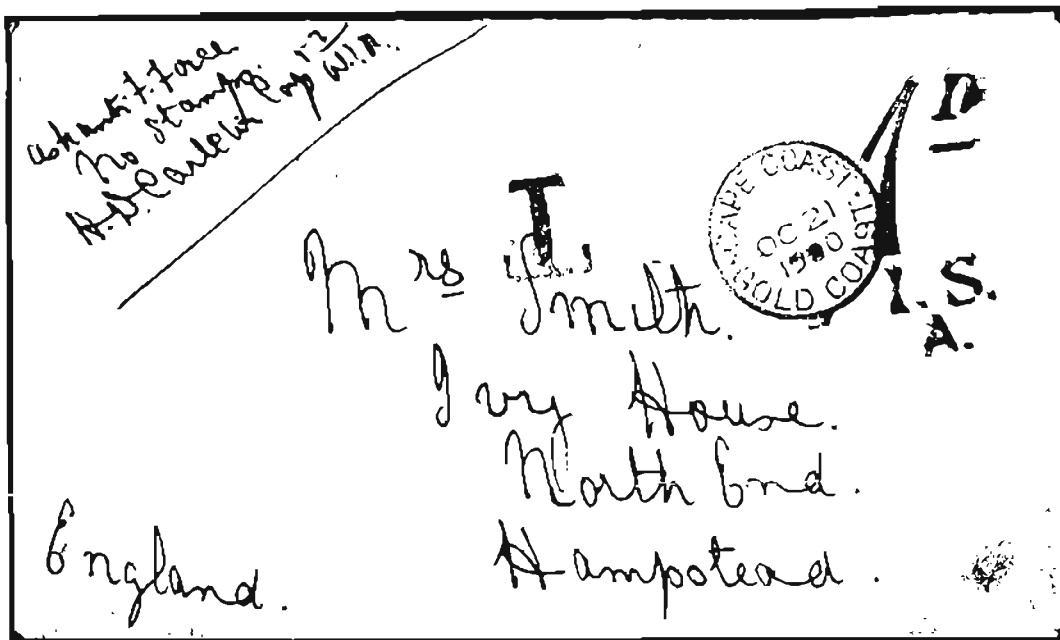 Ashanti F. Force
No Stamps.
H.D. Carleton Capt W.I.R.
T
CAPE COAST
OC 21
1900
GOLD COAST
D
1
I.S.
A.
Mrs Smith.
Ivy House.
North End.
Hampstead.
England.